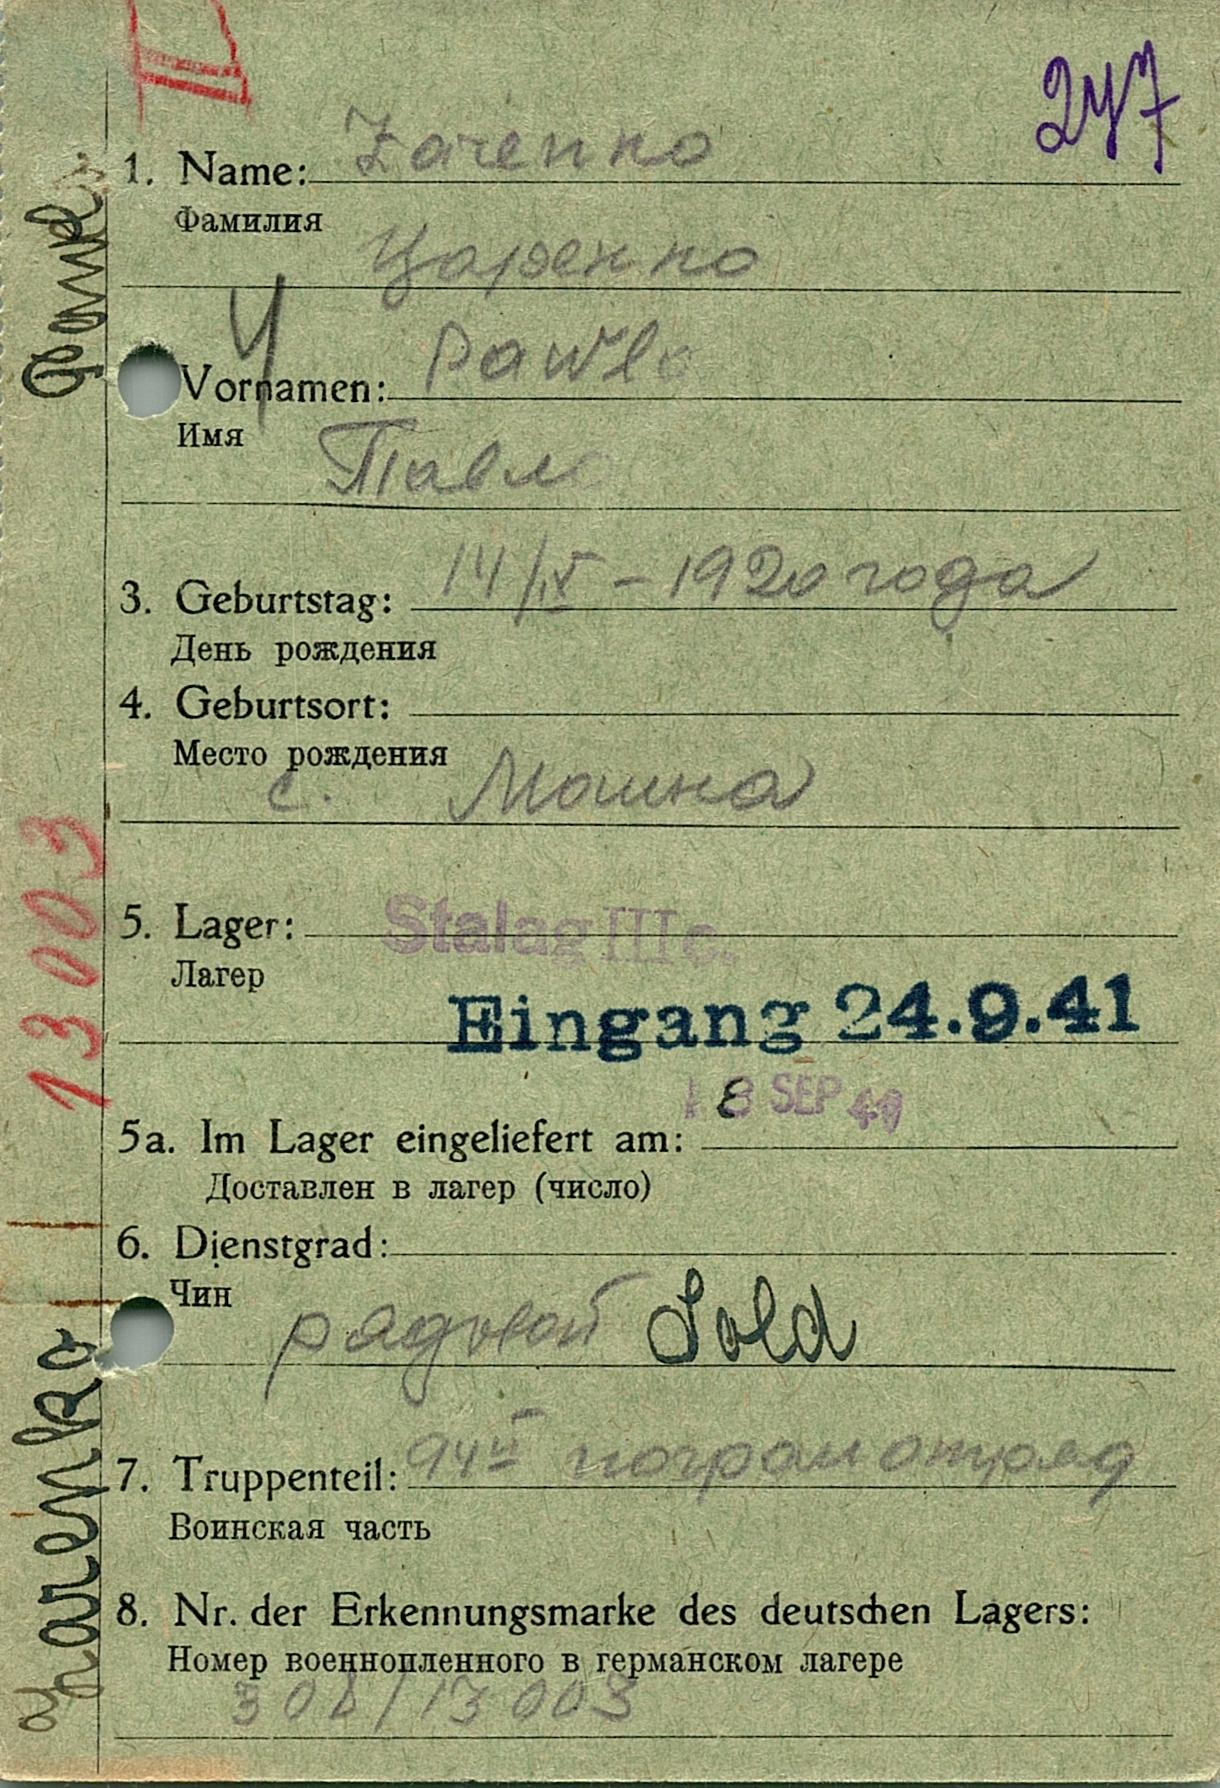 247
1. Name: Zarenko
Фамилия
Царенко
Vornamen: Pawlo
Имя
Павло
3. Geburtstag: 14/IX – 1920 года
День рождения
4. Geburtsort:
Место рождения
с. Мошна
5. Lager: Stalag III c.
Лагер
Eingang 24.9.41
18 SEP 41
5a. Im Lager eingeliefert am:
Доставлен в лагер (число)
6. Dienstgrad:
Чин
рядовой Sold
7. Truppenteil: 94й погран отряд
Воинская часть
8. Nr. der Erkennungsmarke des deutschen Lagers:
Номер военнопленного в германском лагере
304/13003
13003
Zarenko